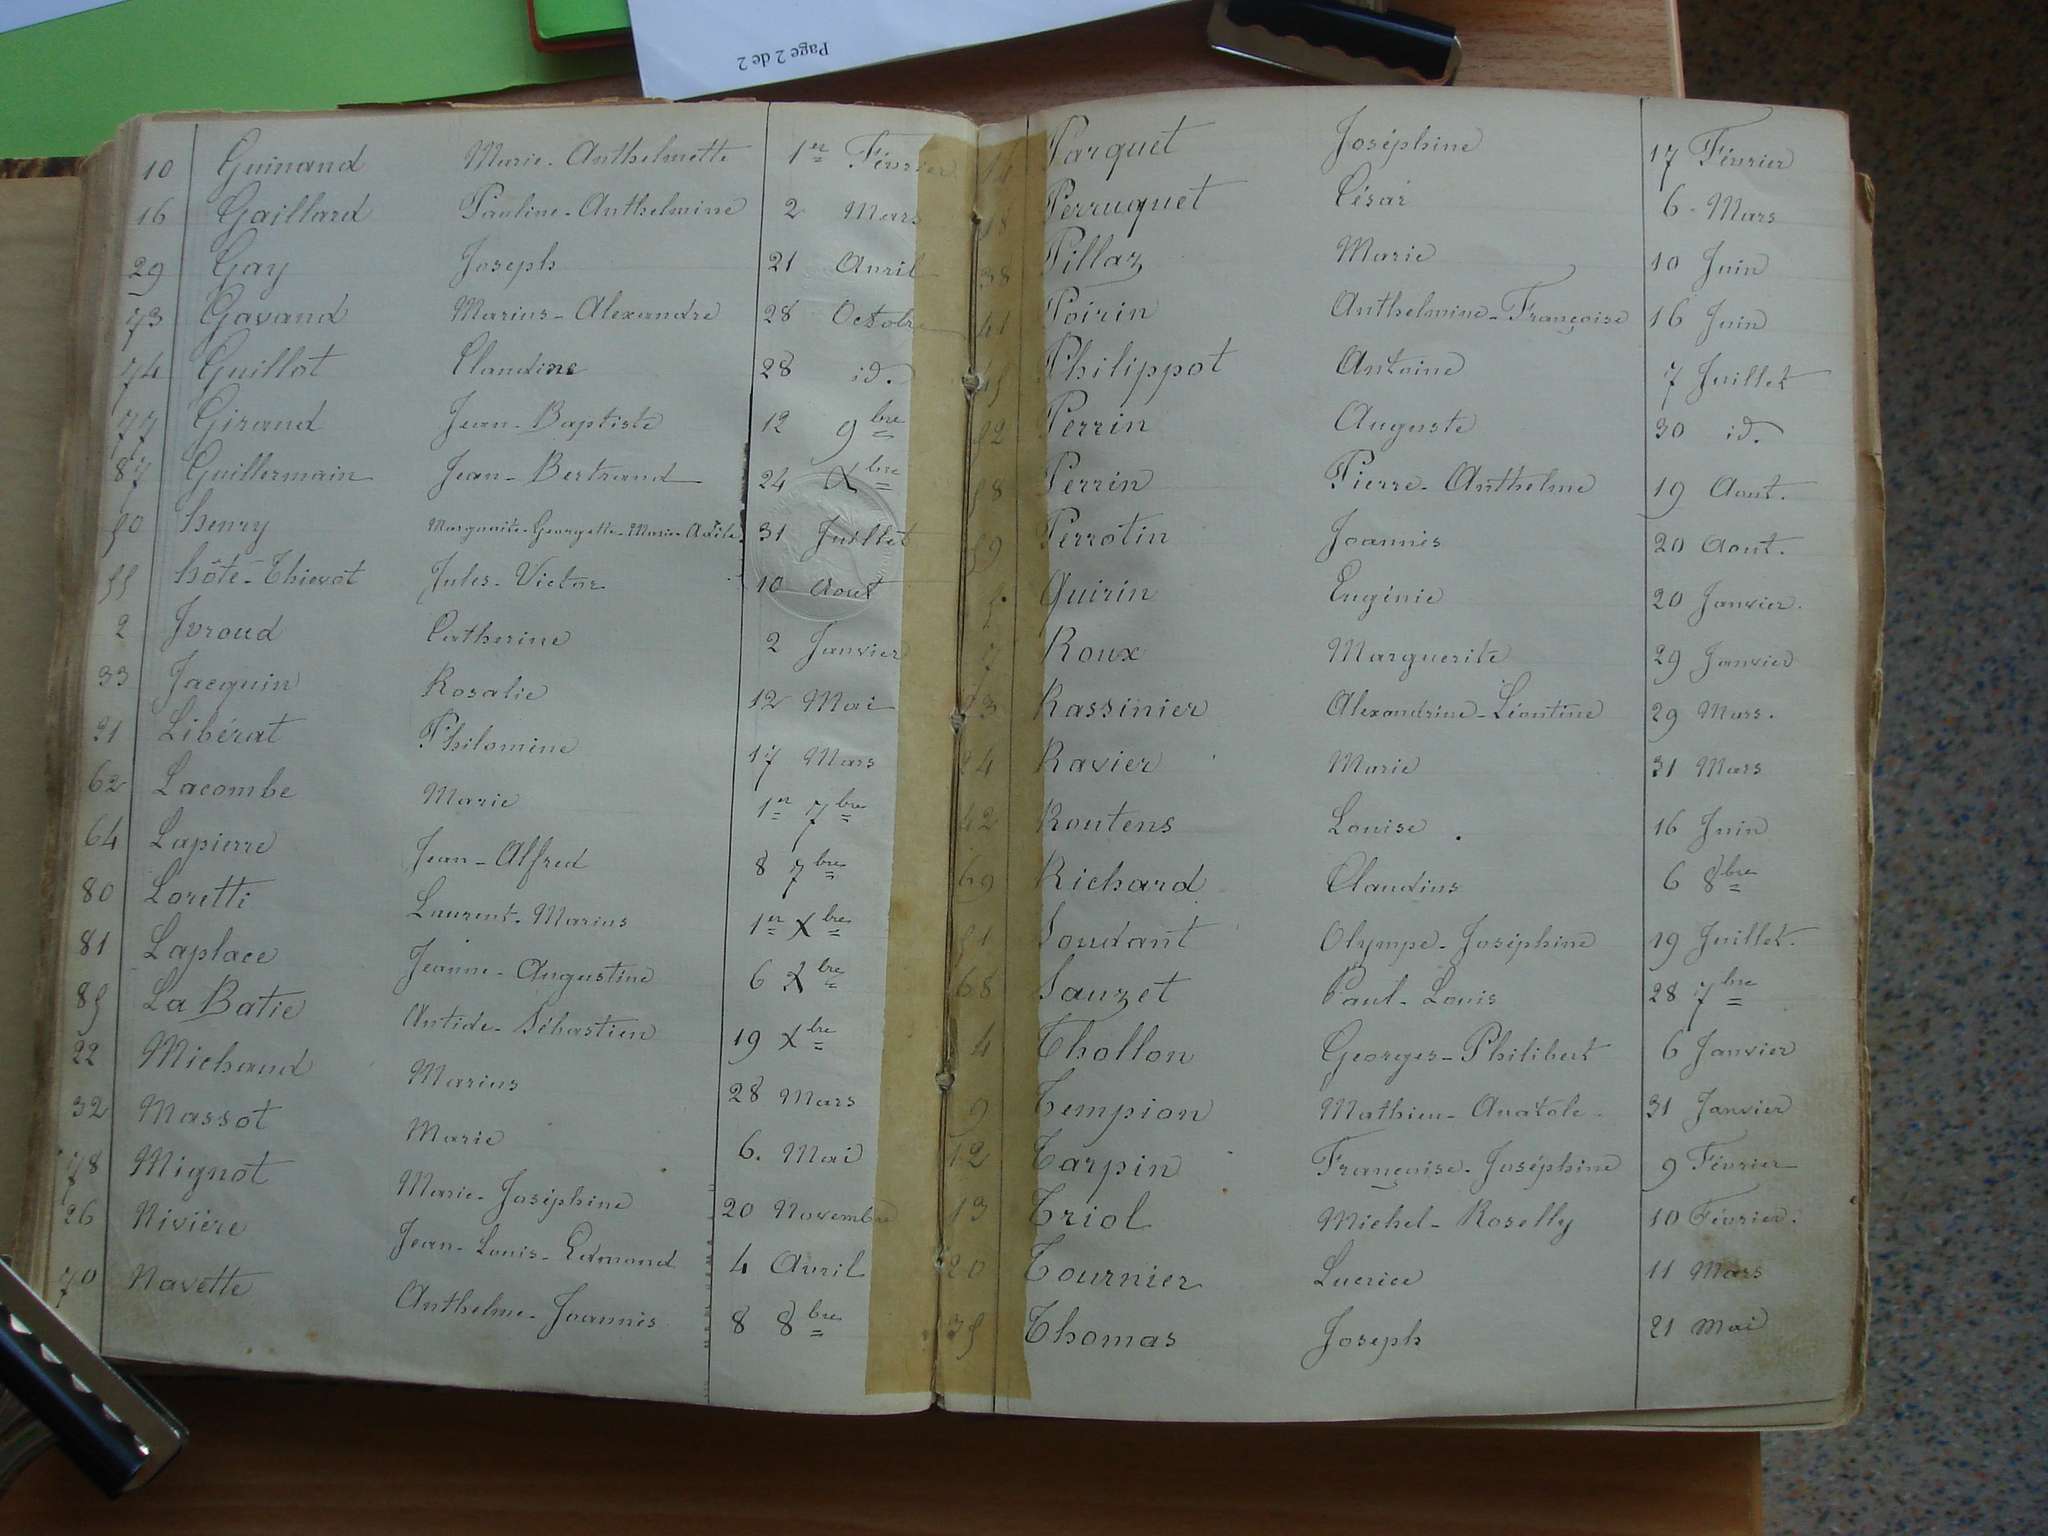 Page 2 de 2
10 Guinand Marie-Anthelmette 1er Février
16 Gaillard Pauline-Anthelmine 2 Mars
29 Gay Joseph 21 Avril
73 Gavand Marius-Alexandre 28 Octobre
74 Guillot Claudine 28 id.
77 Girand Jean-Baptiste 12 9bre
87 Guillermain Jean-Bertrand 24 Xbre
50 henry Marguerite-Georgette-Marie-Adèle 31 Juillet
55 hôte-Thievot Jules-Victor 10 Aout
2 Jvroud Catherine 2 Janvier
33 Jacquin Rosalie 12 Mai
21 Libérat Philomine 17 Mars
62 Lacombe Marie 1er 7bre
64 Lapierre Jean-Alfred 8 7bre
80 Loretti Laurent-Marius 1er Xbre
81 Laplace Jeanne-Augustine 6 Xbre
85 La Batie Antide-Sébastien 19 Xbre
22 Michaud Marius 28 Mars
32 Massot Marie 6. Mai
78 Mignot Marie-Joséphine 20 Novembre
26 Nivière Jean-Louis-Edmond 4 Avril
70 Navette Anthelme-Joannès 8 8bre
Parquet Joséphine 17 Février
18 Perruquet César 6-Mars
38 Pillaz Marie 10 Juin
41 Poirin Anthelmine-Françoise 16 Juin
45 Philippot Antoine 7 Juillet
52 Perrin Auguste 30 id.
58 Perrin Pierre-Anthelme 19 Aout.
59 Perrotin Joannès 20 Aout.
5. Quirin Eugénie 20 Janvier.
7 Roux Marguerite 29 Janvier
23 Rassinier Alexandrine-Léontine 29 Mars.
24 Ravier Marie 31 Mars
42 Routens Louise 16 Juin
69 Richard Claudius 6 8bre
51 Soudant Olympe-Joséphine 19 Juillet.
68 Sauzet Paul-Louis 28 7bre
4 Thollon Georges-Philibert 6 Janvier
9 Tempion Mathieu-Anatole 31 Janvier
12 Tarpin Françoise-Joséphine 9 Février
13 Triol Michel-Roselly 10 Février.
20 Tournier Lucrice 11 Mars
35 Thomas Joseph 21 Mai